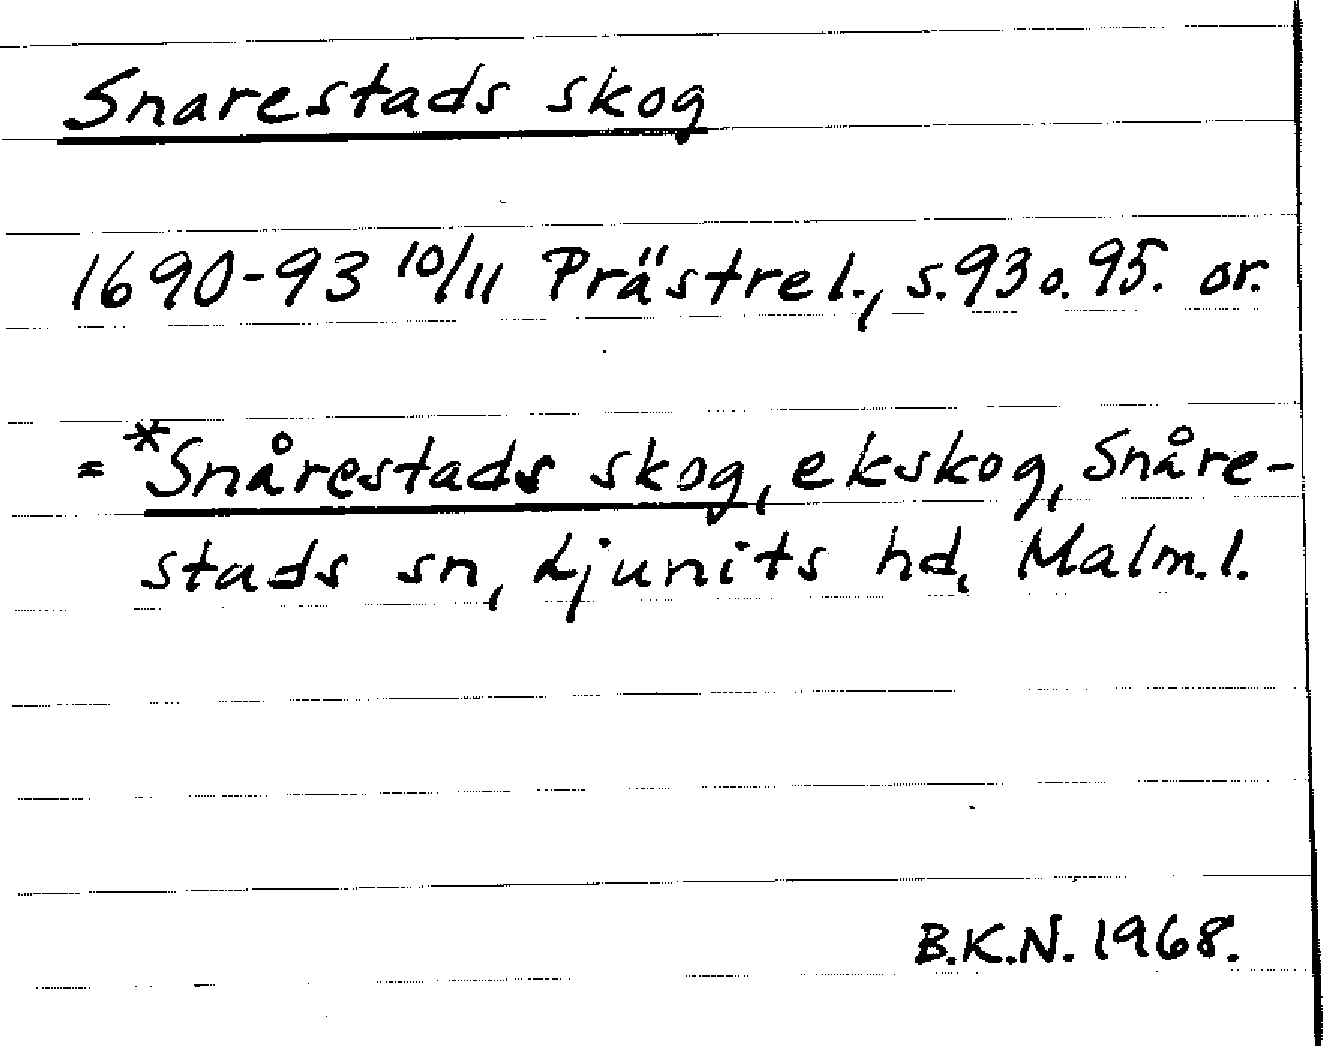 Snarestads skog
1690-93 10/11 Prästrel., s.93 o. 95. or.
= *Snårestads skog, ekskog, Snåre-
stads sn, Ljunits hd, Malm.l.
B.K.N. 1968.